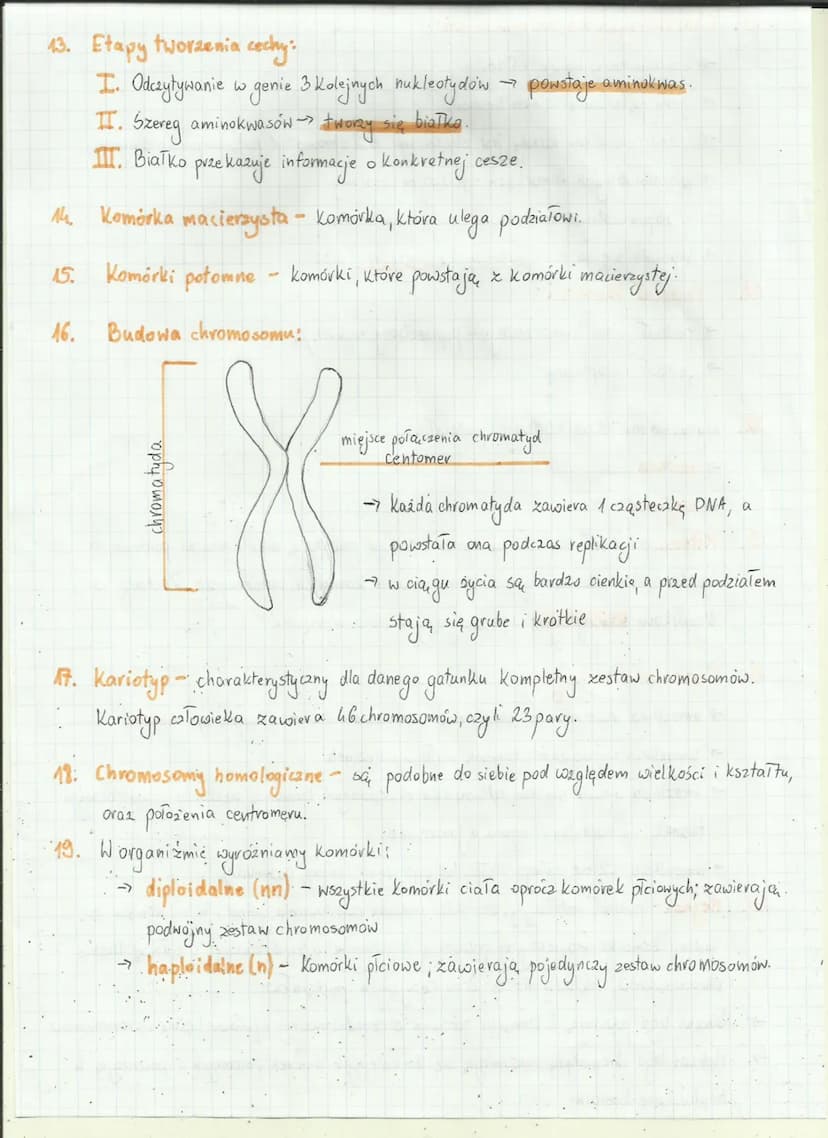 13. Etapy tworzenia cechy:
I. Odczytywanie w genie 3 kolejnych nukleotydów → powstaje aminokwas.
II. Szereg aminokwasów → tworzy się białko.
III. Białko przekazuje informacje o konkretnej cesze.
14. Komórka macierzysta – komórka, która ulega podziałowi.
15. Komórki potomne – komórki, które powstają z komórki macierzystej.
16. Budowa chromosomu:
chromatyda
miejsce połączenia chromatyd
centomer
→ Każda chromatyda zawiera 1 cząsteczkę DNA, a
powstała ona podczas replikacji
→ w ciągu życia są bardzo cienkie, a przed podziałem
stają się grube i krótkie
17. Kariotyp – charakterystyczny dla danego gatunku kompletny zestaw chromosomów.
Kariotyp człowieka zawiera 46 chromosomów, czyli 23 pary.
18. Chromosomy homologiczne – są podobne do siebie pod względem wielkości i kształtu,
oraz położenia centromeru.
19. W organizmie wyróżniamy komórki:
→ diploidalne (nn) – wszystkie komórki ciała oprócz komórek płciowych; zawierają
podwójny zestaw chromosomów
→ haploidalne (n) – komórki płciowe; zawierają pojedynczy zestaw chromosomów.